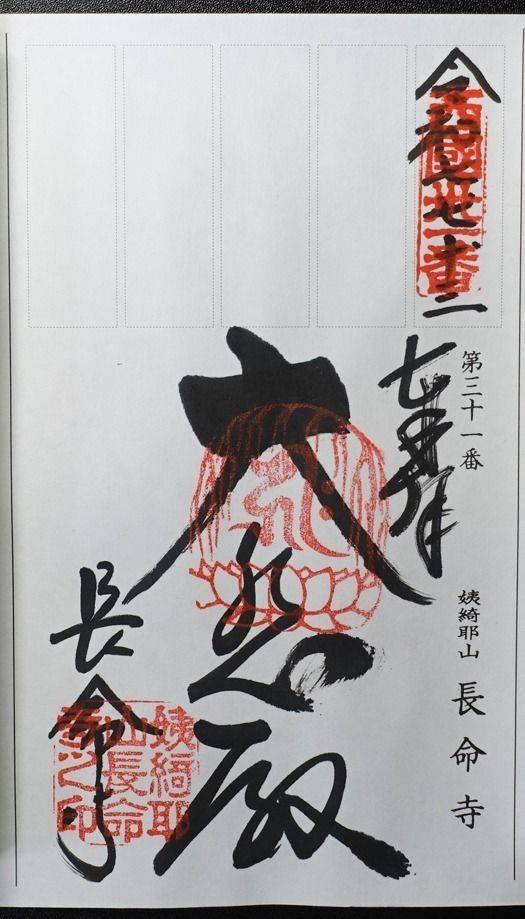 令和
十二
七
奉拝
西國丗一番
第三十一番
姨綺耶山 長命寺
大悲殿
長命寺
姨綺耶
山長命
寺之印